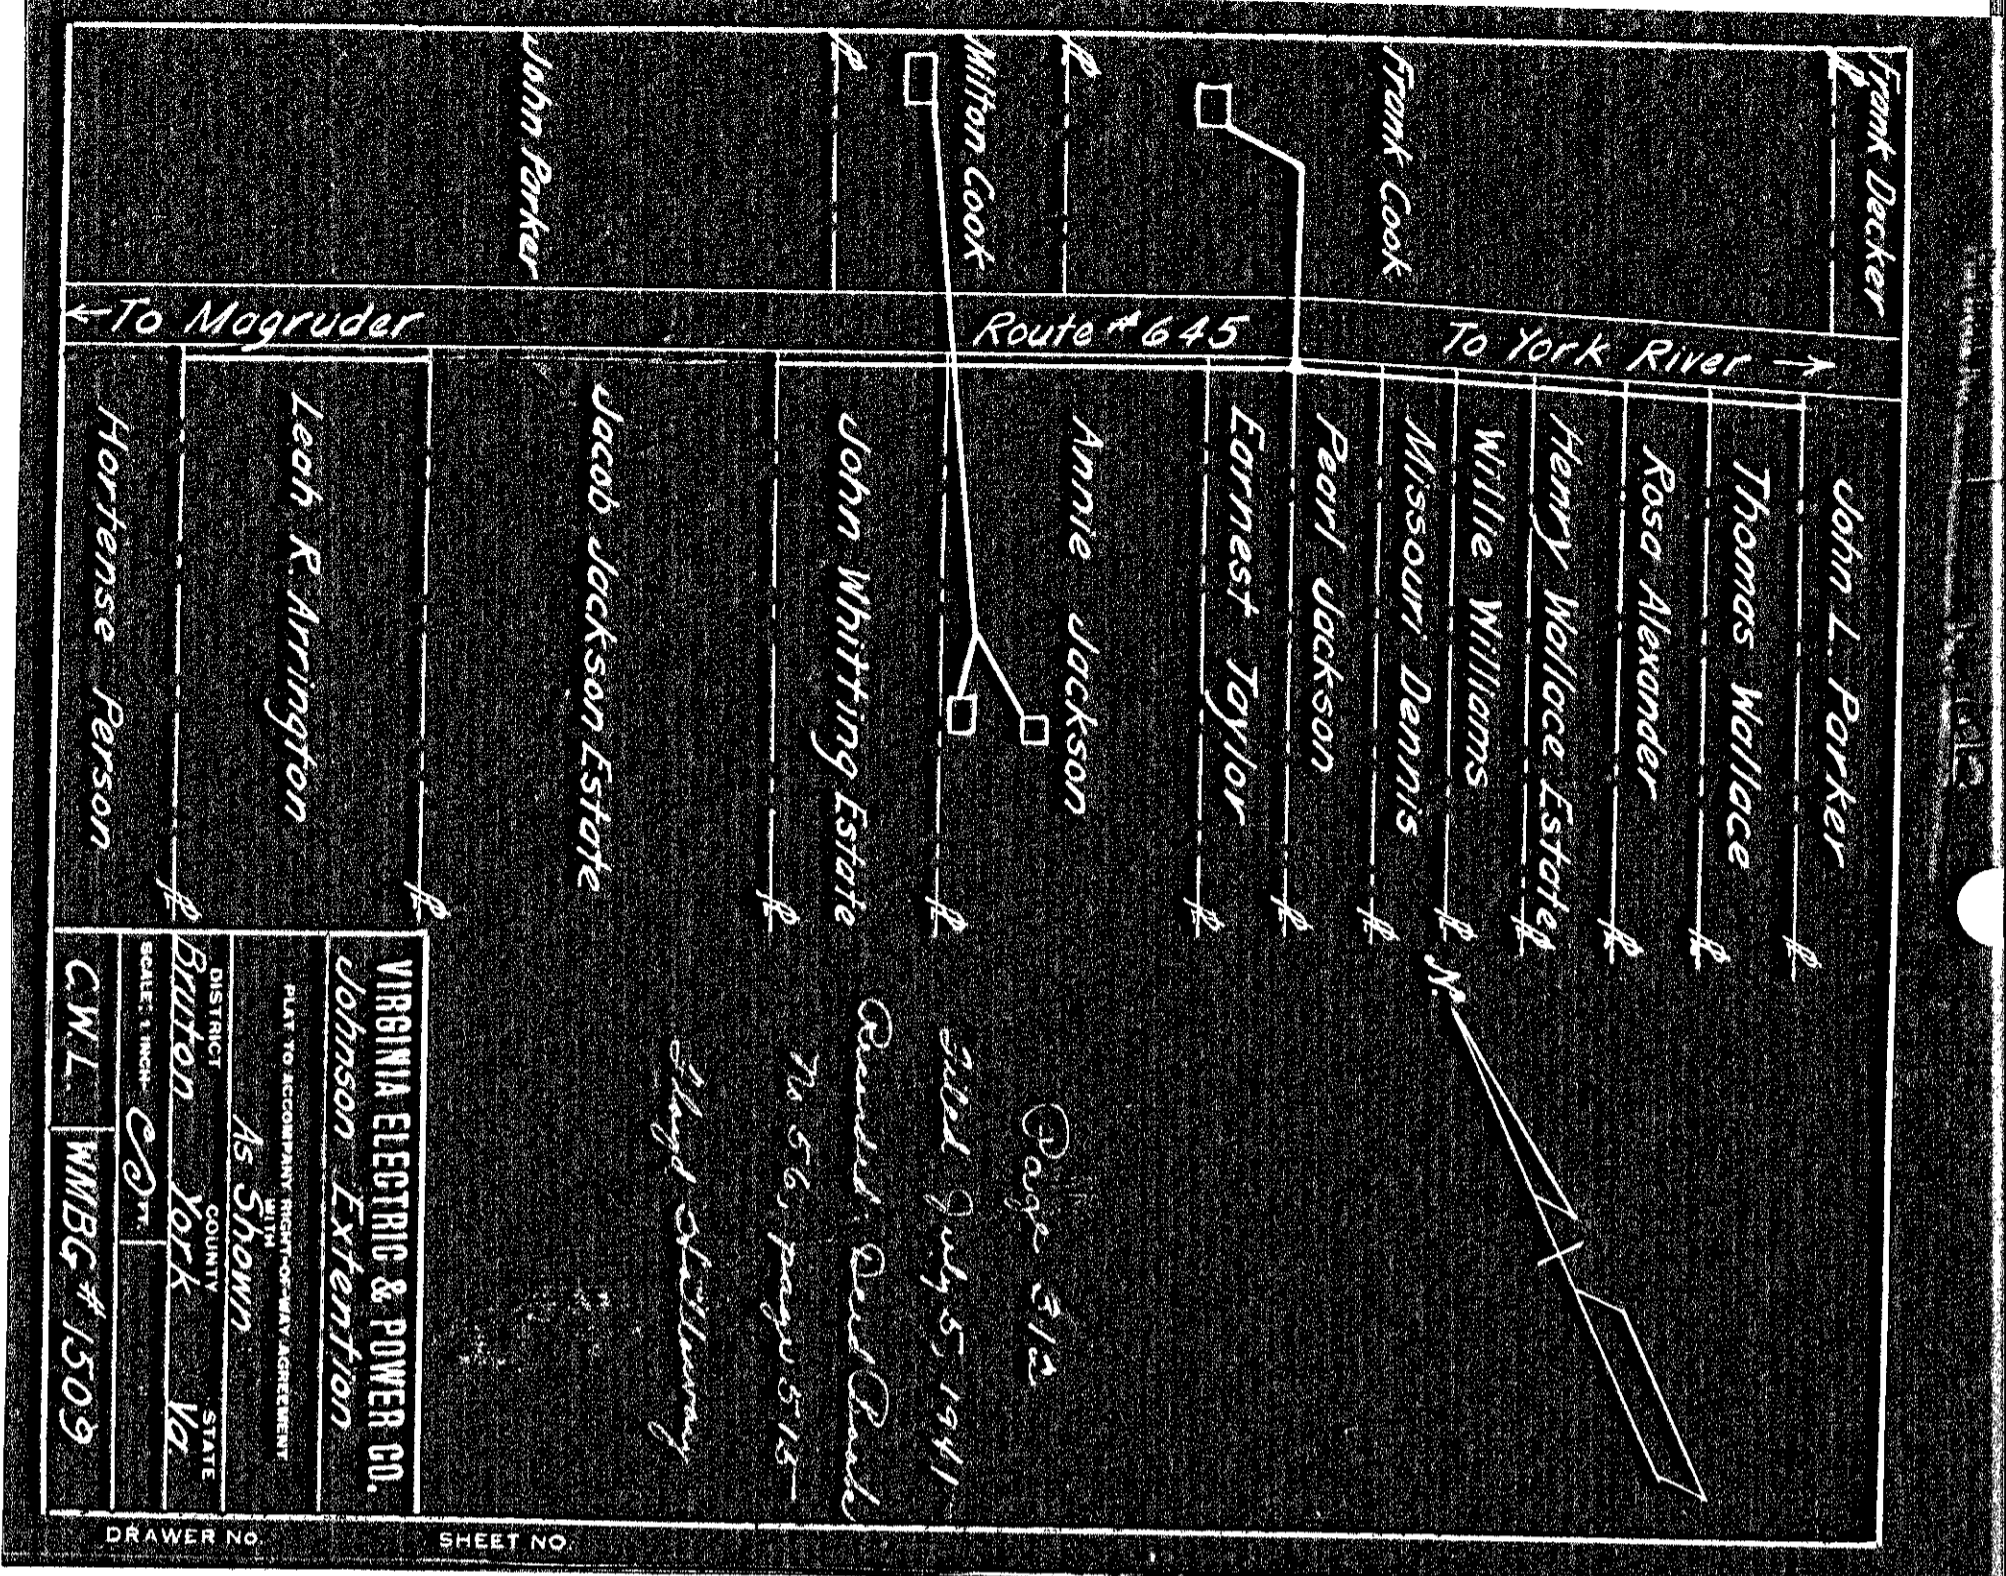 Frank Decker
Frank Cook
Milton Cook
John Parker
← To Magruder
Route # 645
To York River →
John L. Parker
Thomas Wallace
Rosa Alexander
Henry Wallace Estate
Willie Williams
Missouri Dennis
Pearl Jackson
Earnest Taylor
Annie Jackson
John Whitting Estate
Jacob Jackson Estate
Leah R. Arrington
Hortense Person
N.
Page 312
Filed July 5 1941
Recorded Deed Book
No 56, page 515
Floyd Holloway
VIRGINIA ELECTRIC & POWER CO.
Johnson Extention
PLAT TO ACCOMPANY RIGHT-OF-WAY AGREEMENT
WITH
As Shown
DISTRICT COUNTY STATE
Bruton York Va
SCALE: 1 INCH- FT.
C.W.L. WMBG # 1509
DRAWER NO. SHEET NO.